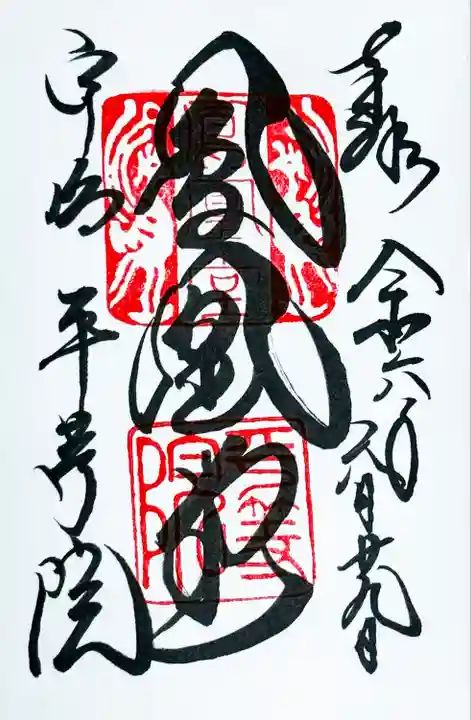 奉拝 令和六年
月廿九日
鳳凰堂
宇治 平等院